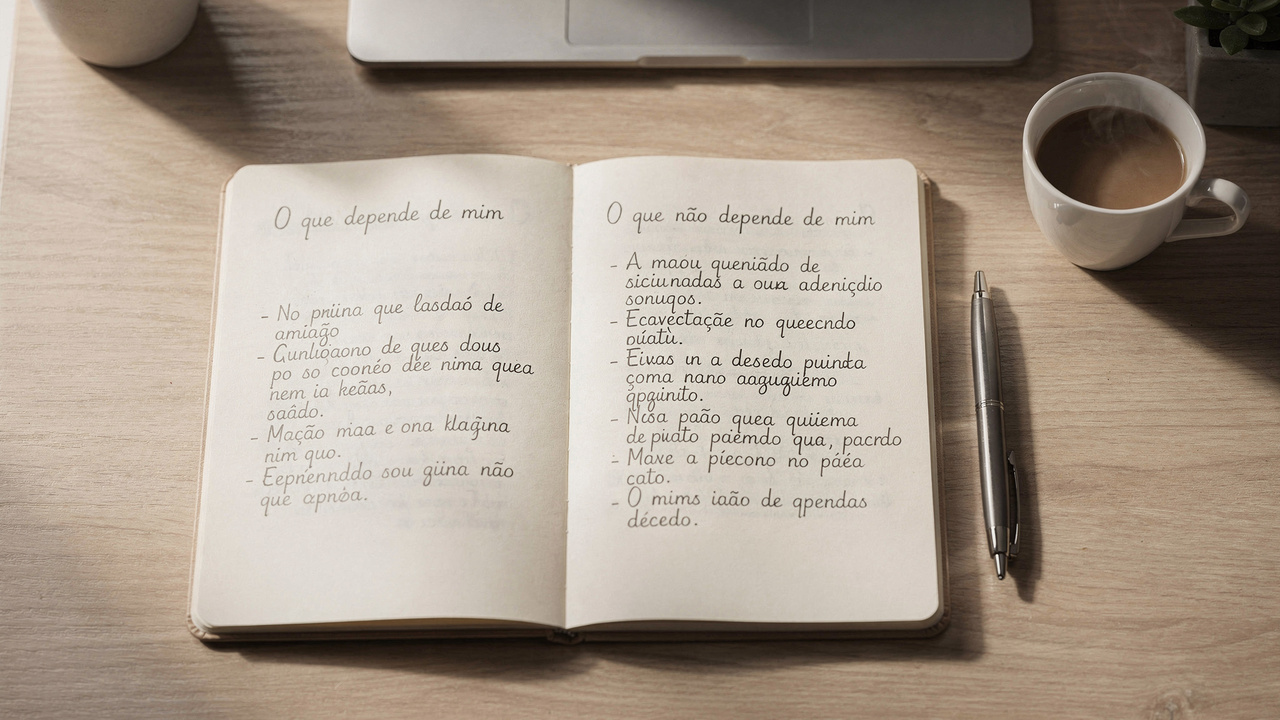 O que depende de mim
- No priina que lasdaó de
amiagõ
- Gunlioaono de ques dous
po so coonéo dée nima quea
nem ia keãas,
saâdo.
- Mação miaa e ona klagina
nim quo.
- Eepnennddo sou giina não
que apnòa.
O que não depende de mim
- A maou queniãdo de
siciunadas a oua adeniçdio
sonuqos.
- Ecavectação no queecndo
oúatù.
- Eivas un a desedo puinta
çoma nano aagugüemo
qpginito.
- Nisa paão quea quiiema
de piiato paemdo qua, pacrdo
- Maxe a piecono no páéa
cato.
- O mims iaão de qpendas
décedo.